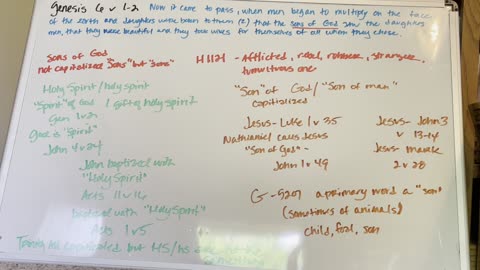 Genesis 6 v 1-2 Now it came to pass, when men began to multiply on the face
of the earth and daughters were born to them (2) that the sons of God saw the daughters
men, that they were beautiful and they took wives for themselves of all whom they chose.
Sons of God
not capitalized "Sons" but "sons"
H1121 - Afflicted, rebel, robber, stranger,
tumultuous one
Holy Spirit/holy spirit
"Spirit" of God / gift of holy spirit
Gen 1 v 2
God is "Spirit"
John 4 v 24
John baptized with
"Holy Spirit"
Acts 11 v 16
baptized with "Holy Spirit"
Acts 1 v 5
all capitalized but HS/hs
"Son" of God / "Son of man"
capitalized
Jesus - Luke 1 v 35
Nathaniel calls Jesus
"Son of God" -
John 1 v 49
Jesus - John 3
v 13-14
Jesus - Mark
2 v 28
G - 5207 a primary word a "son"
(sometimes of animals)
child, foal, son